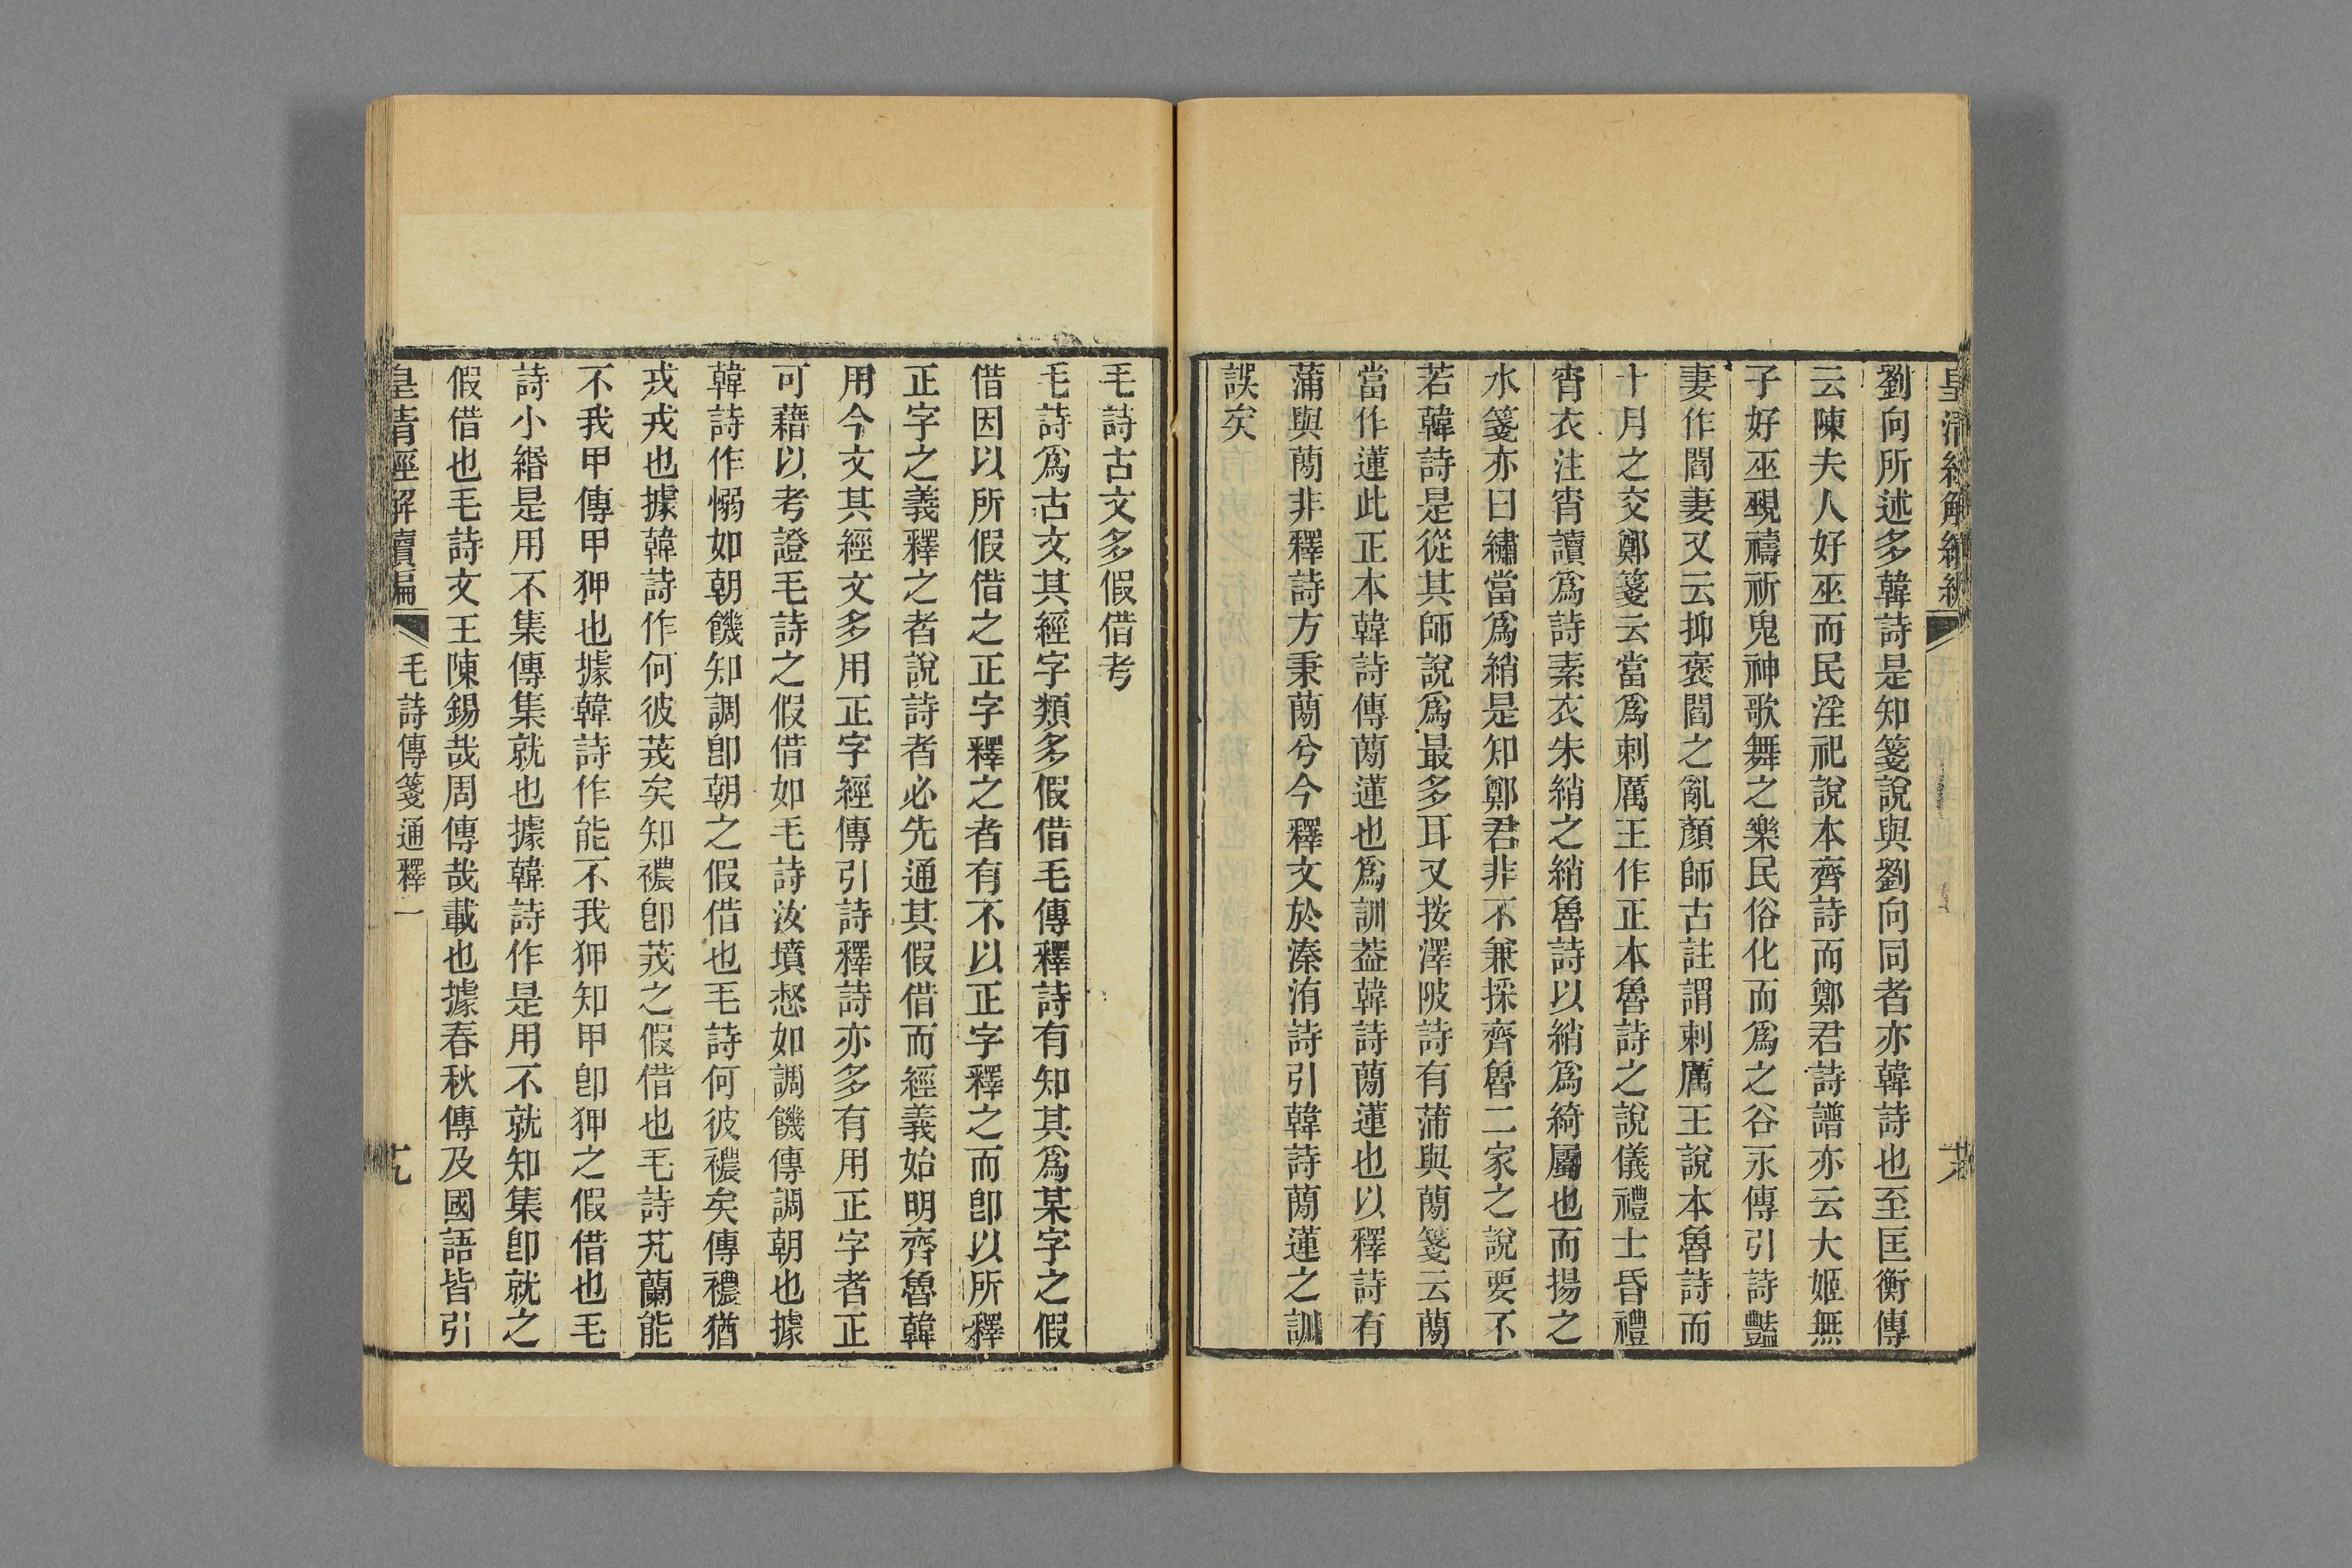 劉向所述多韓詩是知箋說與劉向同者亦韓詩也至匡衡傳
云陳夫人好巫而民淫祀說本齊詩而鄭君詩譜亦云大姬無
子好巫覡禱祈鬼神歌舞之樂民俗化而爲之谷永傳引詩豔
妻作閻妻又云抑褒閻之亂顏師古註謂刺厲王說本魯詩而
十月之交鄭箋云當爲刺厲王作正本魯詩之說儀禮士昏禮
宵衣注宵讀爲詩素衣朱綃之綃魯詩以綃爲綺屬也而揚之
水箋亦曰繡當爲綃是知鄭君非不兼採齊魯二家之說要不
若韓詩是從其師說爲最多耳又按澤陂詩有蒲與蕑箋云蕑
當作蓮此正本韓詩傳蕑蓮也爲訓葢韓詩蕑蓮也以釋詩有
蒲與蕑非釋詩方秉蕑兮今釋文於溱洧詩引韓詩蕑蓮之訓
誤矣
毛詩古文多假借考
毛詩爲古文其經字類多假借毛傳釋詩有知其爲某字之假
借因以所假借之正字釋之者有不以正字釋之而卽以所釋
正字之義釋之者說詩者必先通其假借而經義始明齊魯韓
用今文其經文多用正字經傳引詩釋詩亦多有用正字者正
可藉以考證毛詩之假借如毛詩汝墳惄如調饑傳調朝也據
韓詩作愵如朝饑知調卽朝之假借也毛詩何彼襛矣傳襛猶
戎戎也據韓詩作何彼茙矣知襛卽茙之假借也毛詩芄蘭能
不我甲傳甲狎也據韓詩作能不我狎知甲卽狎之假借也毛
詩小緡是用不集傳集就也據韓詩作是用不就知集卽就之
假借也毛詩文王陳錫哉周傳哉載也據春秋傳及國語皆引
皇清經解續編 毛詩傳箋通釋一